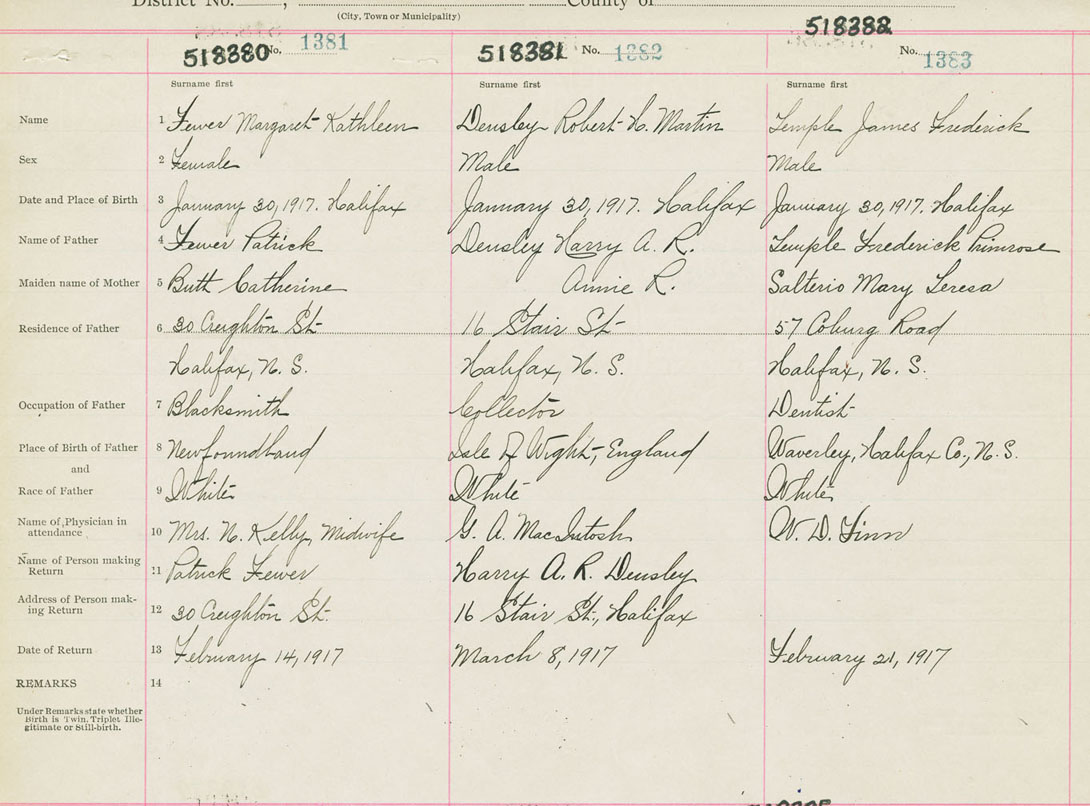 District No. , County of
(City, Town or Municipality)
518380 No. 1381 518381 No. 1382 518382 No. 1383
Surname first Surname first Surname first
Name 1 Fewer Margaret Kathleen Densley Robert H. Martin Temple James Frederick
Sex 2 Female Male Male
Date and Place of Birth 3 January 30, 1917. Halifax January 30, 1917. Halifax January 30, 1917. Halifax
Name of Father 4 Fewer Patrick Densley Harry A. R. Temple Frederick Primrose
Maiden name of Mother 5 Butt Catherine Annie R. Salterio Mary Teresa
Residence of Father 6 30 Creighton St 16 Stair St 57 Coburg Road
Halifax, N. S. Halifax, N. S. Halifax, N. S.
Occupation of Father 7 Blacksmith Collector Dentist
Place of Birth of Father 8 Newfoundland Isle of Wight, England Waverley, Halifax Co., N. S.
and
Race of Father 9 White White White
Name of Physician in attendance 10 Mrs. N. Kelly, Midwife G. A. MacIntosh W. D. Finn
Name of Person making Return 11 Patrick Fewer Harry A. R. Densley
Address of Person making Return 12 30 Creighton St. 16 Stair St., Halifax
Date of Return 13 February 14, 1917 March 8, 1917 February 21, 1917
REMARKS 14
Under Remarks state whether
Birth is Twin, Triplet Ille-
gitimate or Still-birth.